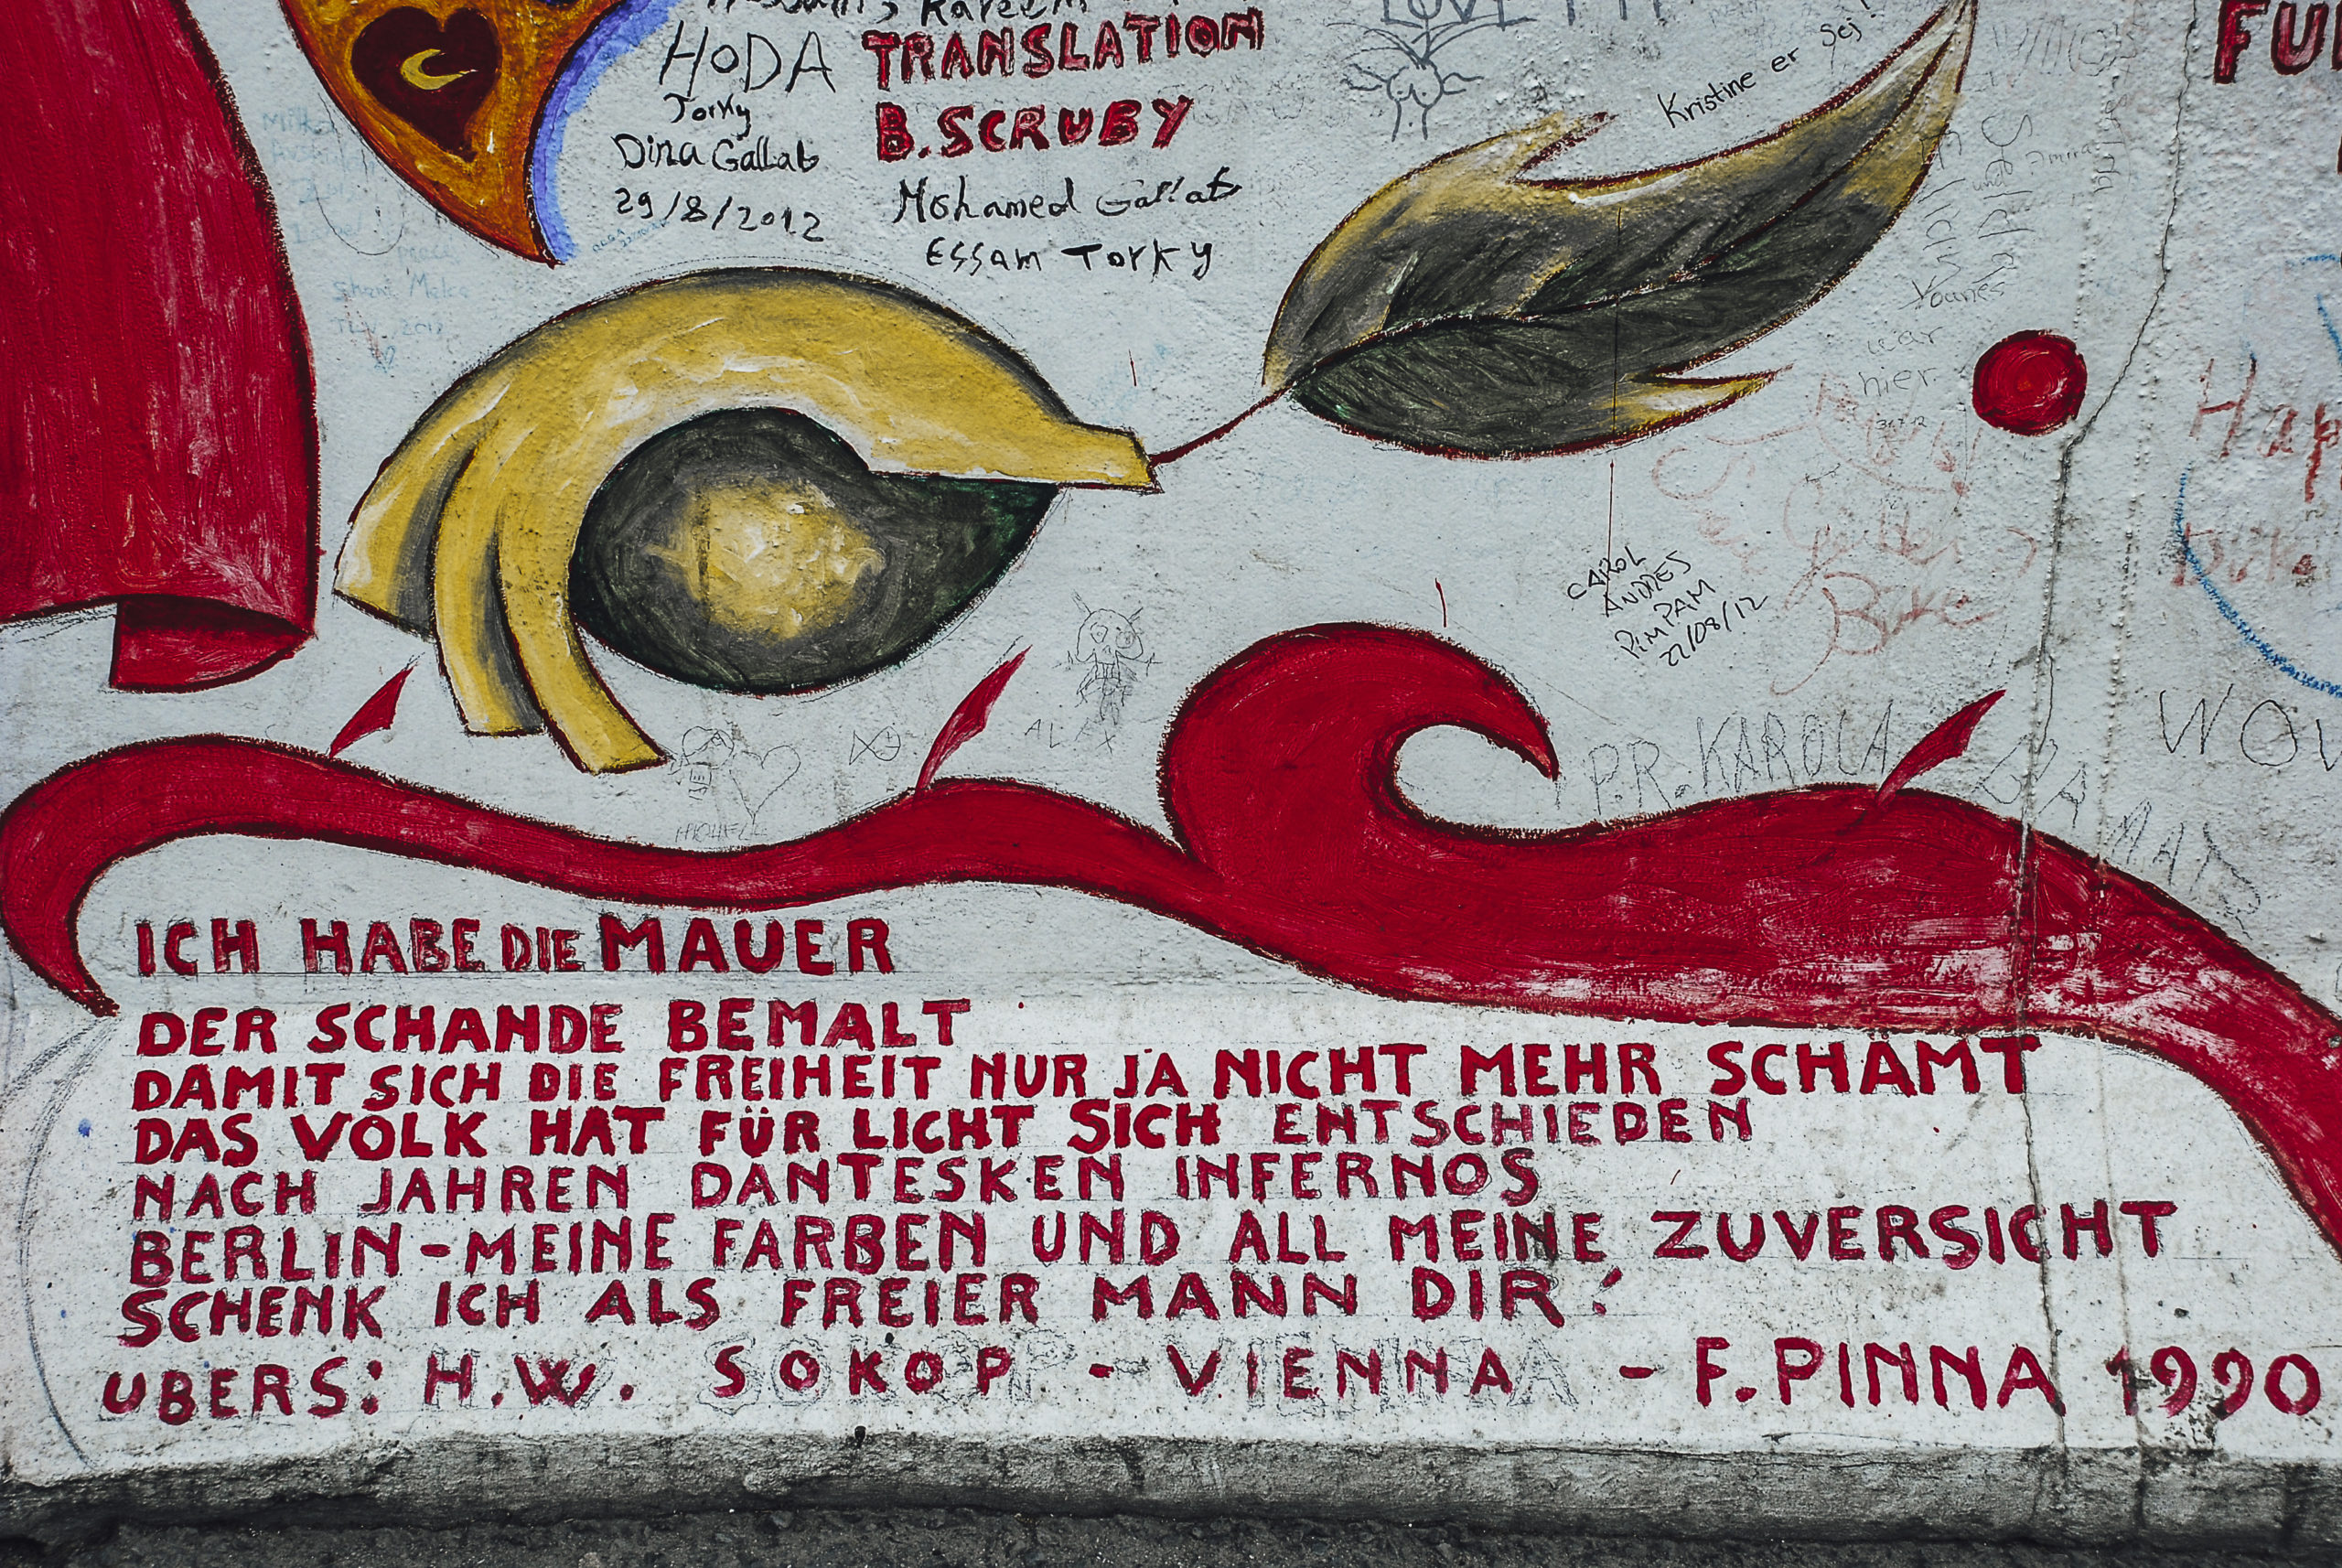 Kareem
HODA
TRANSLATION
Torky
B. SCRUBY
Dina Gallab
29/8/2012
Mohamed Gallab
ESSAM TORKY
LOVE
Kristine er Sej!
FU
war
hier.
CAROL
ANDRES
PIMPAM
22/08/12
P.R. KAROLA
WOW
ICH HABE DIE MAUER
DER SCHANDE BEMALT
DAMIT SICH DIE FREIHEIT NUR JA NICHT MEHR SCHÄMT
DAS VOLK HAT FÜR LICHT SICH ENTSCHIEDEN
NACH JAHREN DANTESKEN INFERNOS
BERLIN-MEINE FARBEN UND ALL MEINE ZUVERSICHT
SCHENK ICH ALS FREIER MANN DIR!
UBERS: H.W. SOKOP - VIENNA - F. PINNA 1990